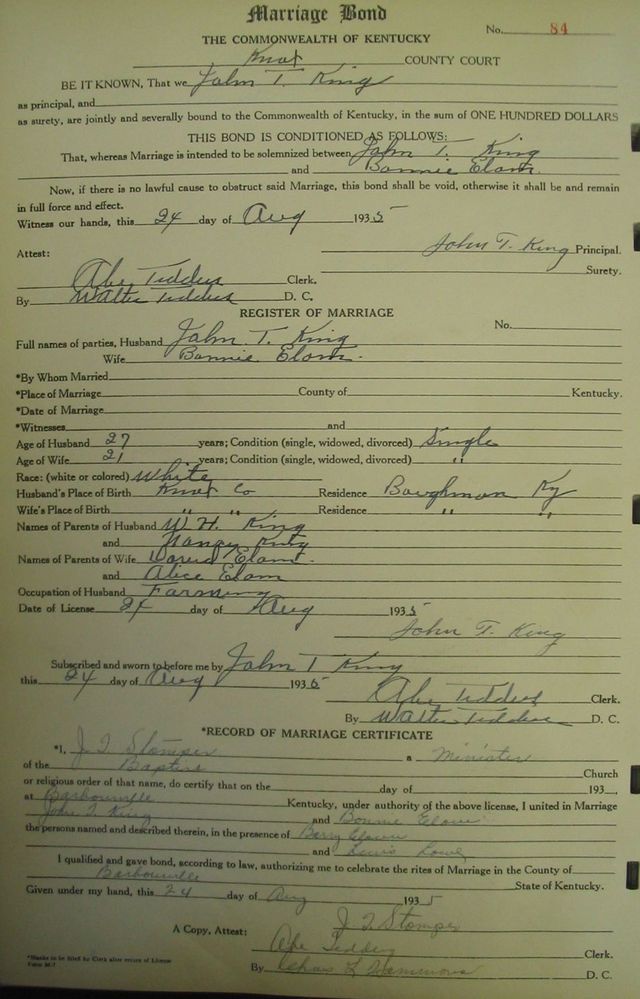 Marriage Bond
No. 84
THE COMMONWEALTH OF KENTUCKY
Knox COUNTY COURT
BE IT KNOWN, That we John T. King
as principal, and
as surety, are jointly and severally bound to the Commonwealth of Kentucky, in the sum of ONE HUNDRED DOLLARS
THIS BOND IS CONDITIONED AS FOLLOWS:
That, whereas Marriage is intended to be solemnized between John T. King
and Bonnie Elam.
Now, if there is no lawful cause to obstruct said Marriage, this bond shall be void, otherwise it shall be and remain
in full force and effect.
Witness our hands, this 24 day of Aug 1935
John T. King Principal.
Attest:
Surety.
Abe Tedders Clerk.
By Walter Tedders D. C.
REGISTER OF MARRIAGE
No.
Full names of parties, Husband John T. King
Wife Bonnie Elam.
*By Whom Married
*Place of Marriage County of Kentucky.
*Date of Marriage
*Witnesses and
Age of Husband 27 years; Condition (single, widowed, divorced) Single
Age of Wife 21 years; Condition (single, widowed, divorced) "
Race: (white or colored) White
Husband's Place of Birth Knox Co Residence Baughman Ky
Wife's Place of Birth " " Residence " "
Names of Parents of Husband W. H. King
and Nancy King
Names of Parents of Wife Elam.
and Alice Elam
Occupation of Husband Farming
Date of License 24 day of Aug 1935
John T. King
Subscribed and sworn to before me by John T King
this 24 day of Aug 1935
Abe Tedders Clerk.
By Walter Tedders D. C.
*RECORD OF MARRIAGE CERTIFICATE
*I, J. T. Stamper a Minister
of the Baptist Church
or religious order of that name, do certify that on the day of 193
at Barbourville Kentucky, under authority of the above license, I united in Marriage
John T. King and Bonnie Elam
the persons named and described therein, in the presence of
and Lewis
I qualified and gave bond, according to law, authorizing me to celebrate the rites of Marriage in the County of
Barbourville State of Kentucky.
Given under my hand, this 24 day of Aug 1935
J T Stamper
A Copy, Attest:
Abe Tedders Clerk.
*Blanks to be filled by Clerk after return of License
By Chas L D. C.